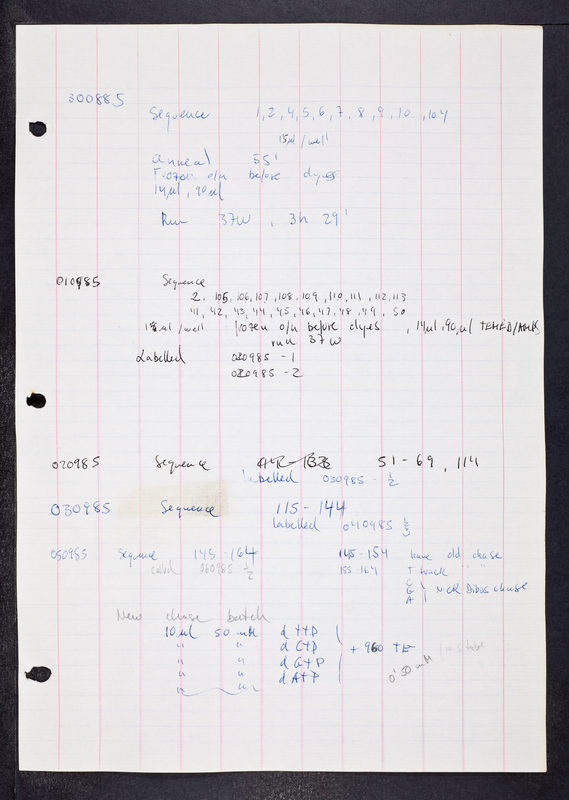 300885
Sequence 1, 2, 4, 5, 6, 7, 8, 9, 10, 104
15µl/well
Anneal 55'
Frozen o/n before dyes
14µl, 90µl
Run 37W, 3h 29'
010985 Sequence
2, 105, 106, 107, 108, 109, 110, 111, 112, 113
41, 42, 43, 44, 45, 46, 47, 48, 49, 50
µl/well frozen o/n before dyes, 14µl, 90µl TEMED/AMPS
run 37W
Labelled 020985 - 1
020985 - 2
020985 Sequence 51-69, 114
labelled 030985 - 1/2
030985 Sequence 115-144
labelled 040985
050985 Sequence 145-164 145-154 have old chase
called 060985 1/2 155-164 T track " "
C
G
A chase
New chase batch
10µl 50mM dTTP
" " dCTP + 960 TE
" " dGTP
" " dATP
" "